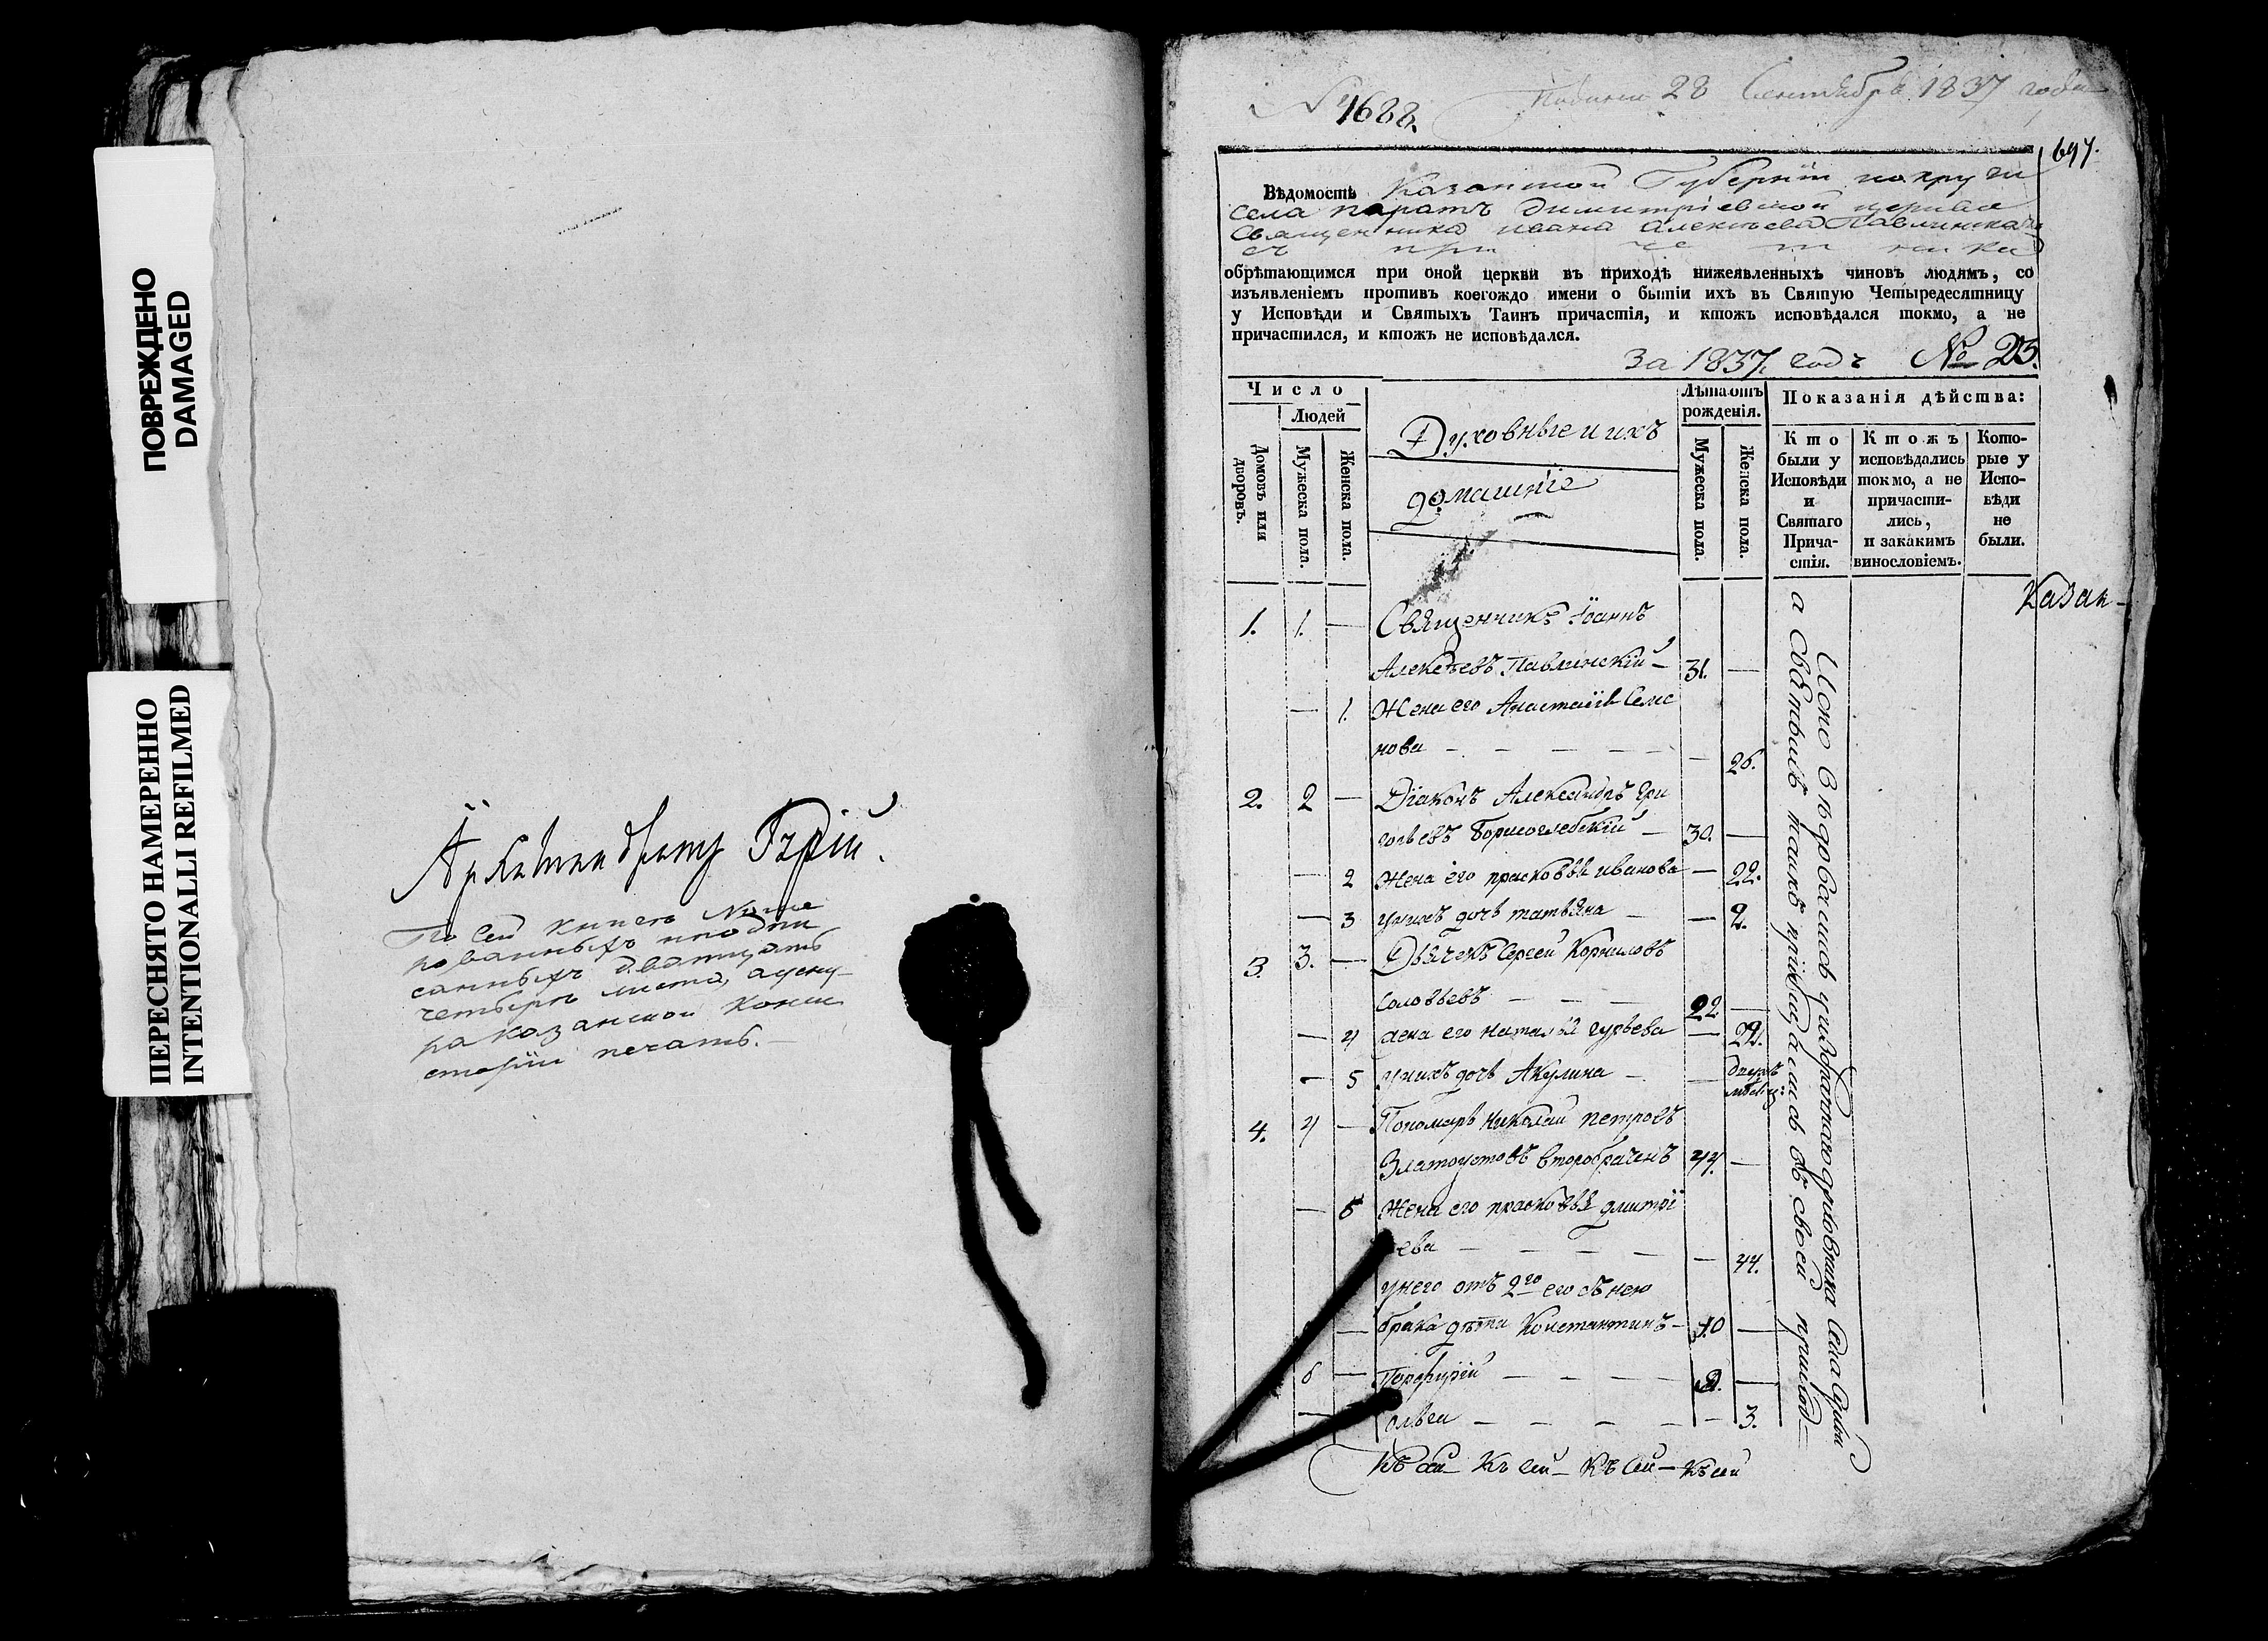 ПОВРЕЖДЕНО
DAMAGED
ПЕРЕСНЯТО НАМЕРЕННО
INTENTIONALLI REFILMED
Архимандритъ Гурій.
По сей книге Номе
рованныхъ
санныхъ дватцать
четыре листа, а у сну
ра казанской Конси
сторіи печать.
№ 1688.
28 Сентября 1837 года
697.
Вѣдомость Казанской Губерніи
села паратъ димитріевской церкви
Священника ивана Алексѣева Павлинска
съ при че т ни ки
обрѣтающимся при оной церкви въ приходѣ нижеявленныхъ чиновъ людямъ, со
изъявленіемъ противъ коегождо имени о бытіи ихъ въ Святую Четыредесятницу
у Исповѣди и Святыхъ Таинъ причастія, и ктожъ исповѣдался токмо, а не
причастился, и ктожъ не исповѣдался.
За 1837. годъ № 23.
Число
Людей
Домовъ или дворовъ.
Мужеска пола.
Женска пола.
Духовные и ихъ
домашніе
Лѣта отъ рожденія.
Мужеска пола.
Женска пола.
Показанія дѣйства:
Кто были у Исповѣди и Святаго Прича-стія.
Ктожъ исповѣдались токмо, а не причасти-лись, и закакимъ винословіемъ.
Кото-рые у Испо-вѣди не были.
Казан-
1. 1. — Священникъ Іоаннъ
Алексѣевъ Павлинскій — 31. —
— 1. Жена его Анастасія Семе
нова — — — — — — 26.
2. 2 — Діаконъ Александръ Гри
горьевъ Борисоглебскій — 30. —
— 2 Жена его прасковья иванова — 22.
— 3 у нихъ дочь татьяна — — 2.
3. 3. — Дьячекъ Сергей Корниловъ
Соловьевъ — — — 22 —
— 4 жена его наталья гурьева — 22.
— 5 у нихъ дочь Акулина — — двухъ месяц:
4. 4 — Пономарь Николай петровъ
Златоустовъ второбраченъ 44. —
— 6 Жена его прасковья дмитрі
ева — — — — — 44.
у него отъ 2го его съ нею
брака дѣти Константинъ — 10 —
6 — Порфирій — — — — 8. —
— ольга — — — — — 3.
Исповѣдовались у избраннаго духовника села
а Святыхъ таинъ пріобщались въ своей приход—
Къ сей — Къ сей — Къ сей — Къ сей